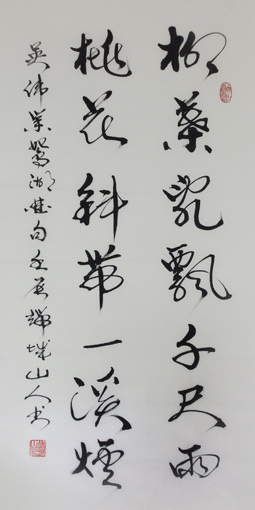 柳葉亂飄千尺雨
桃花斜帶一溪煙
吳偉業鴛湖佳句壬城山人书